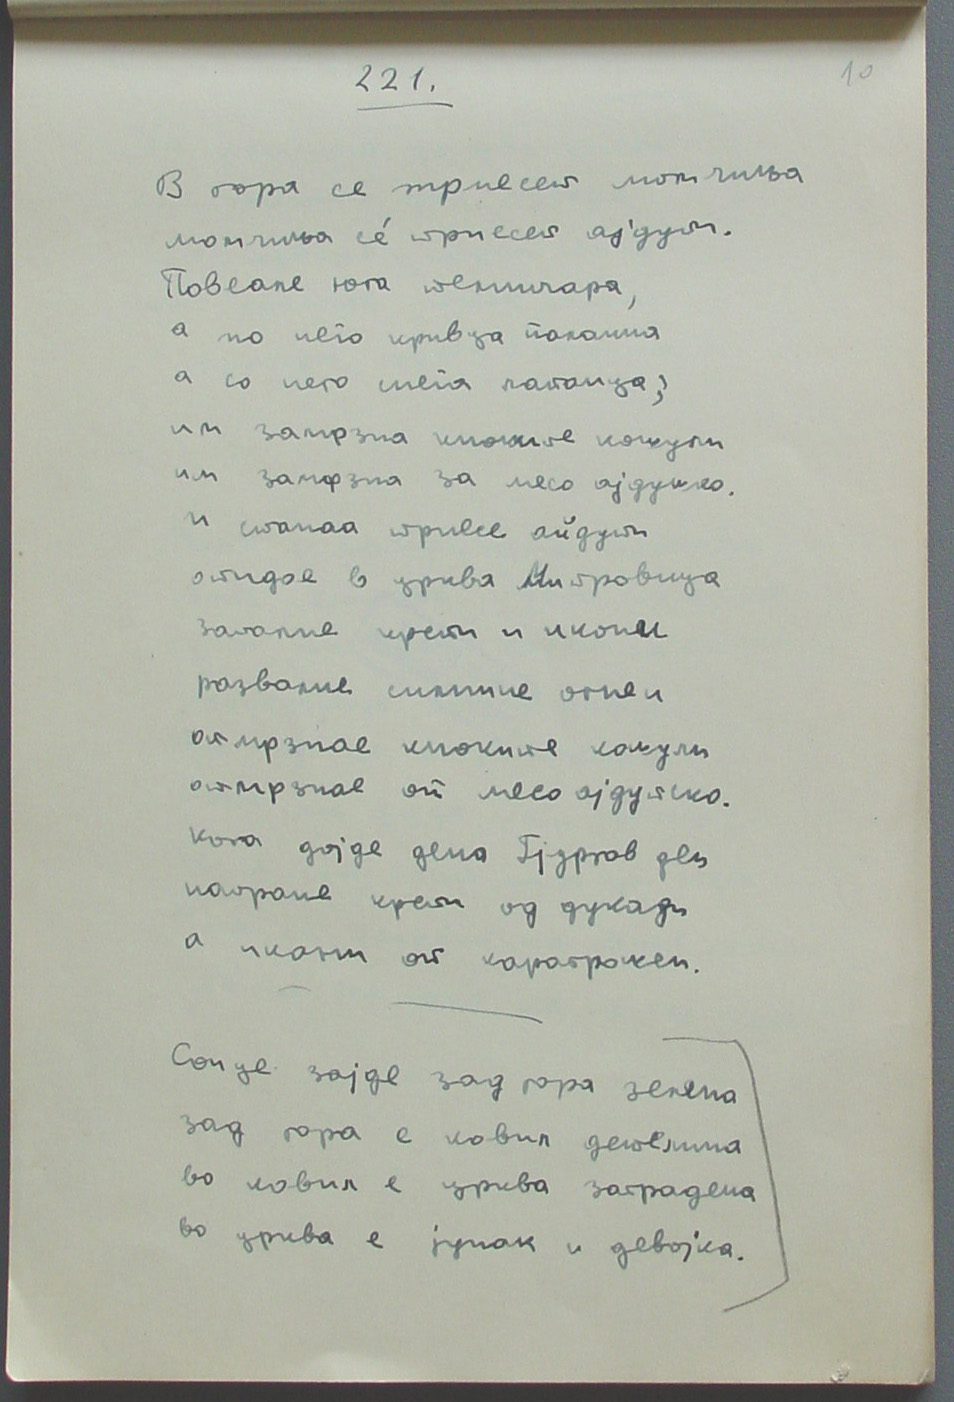 221.
10
В гора се триесет момчиља
момчиља се́ триесет ајдути.
Повеале југа темничара,
а по него кривца
а со него снега лапаица;
им замрзна кожули
им замрзна за месо ајдушко.
и станаа триесе айдути
отидое в црква Митровица
запалие крсти и иконы
развалие силните огнеи
отмрзнае кожули
отмрзнае от месо ајдутско.
Кога дојде дена Гјургов ден
направие крсти од дукади
а икони от карагрошеи.
Сонце зајде зад гора зелена
зад гора е ковил детелина
во ковил е црква заградена
во црква е јунак и девојка.